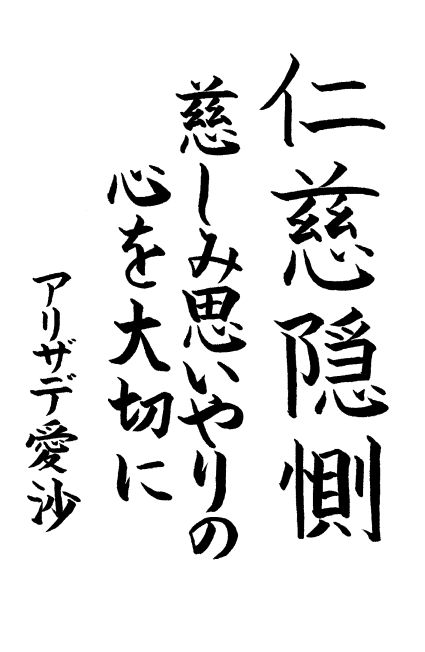 仁慈隠惻
慈しみ思いやりの
心を大切に
アリザデ愛沙